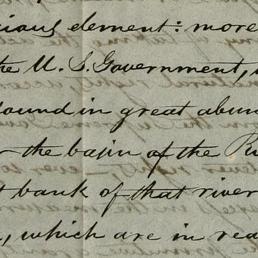 cious element: more
the U. S. Government,
found in great abun
the basin of the
bank of that river
, which are in rea